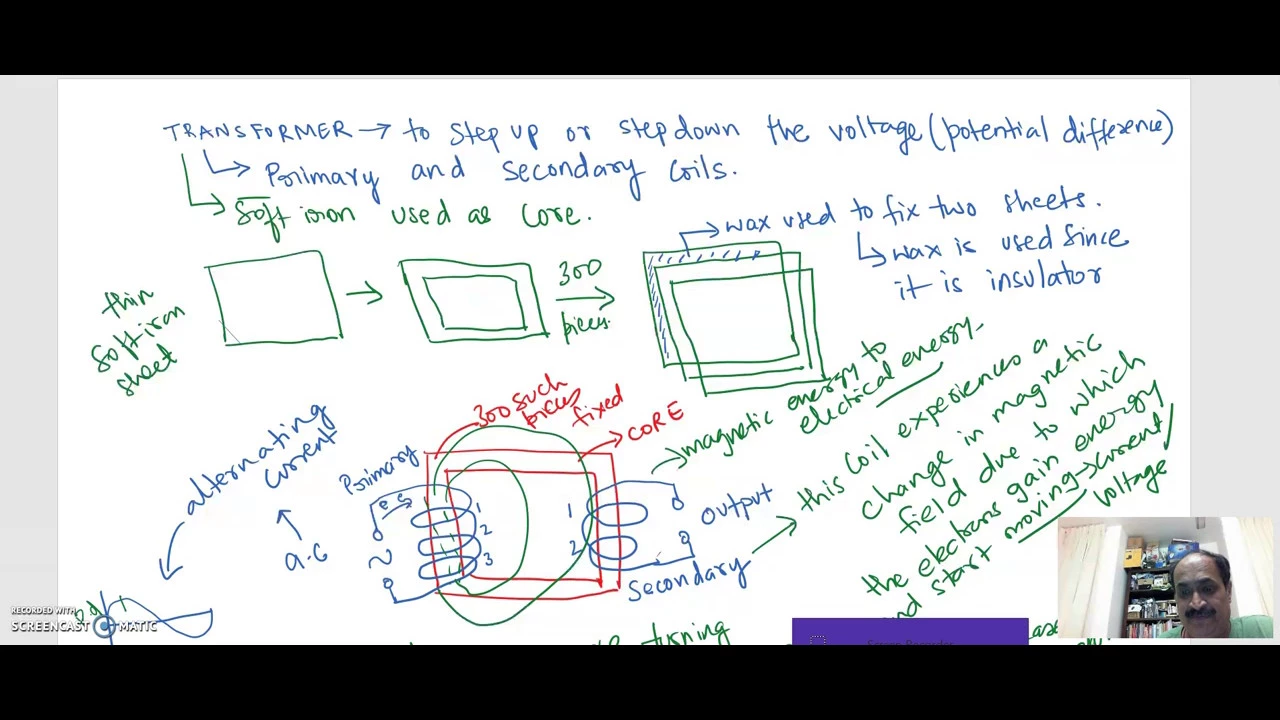 TRANSFORMER → to step up or step down the voltage (potential difference)
↳ Primary and secondary coils.
↳ Soft iron used as core.
→ wax used to fix two sheets.
↳ wax is used since
it is insulator
thin
soft iron
sheet
→
300
pieces
300 such
pieces
fixed
→ CORE
→ magnetic energy to
electrical energy.
alternating
current
a.c
Primary
e s
1
2
3
~
1
2
Output
Secondary
→ this coil experiences a
change in magnetic
field due to which
the electrons gain energy
and start moving → current
voltage
turning
RECORDED WITH
SCREENCAST MATIC
Screen Recorder